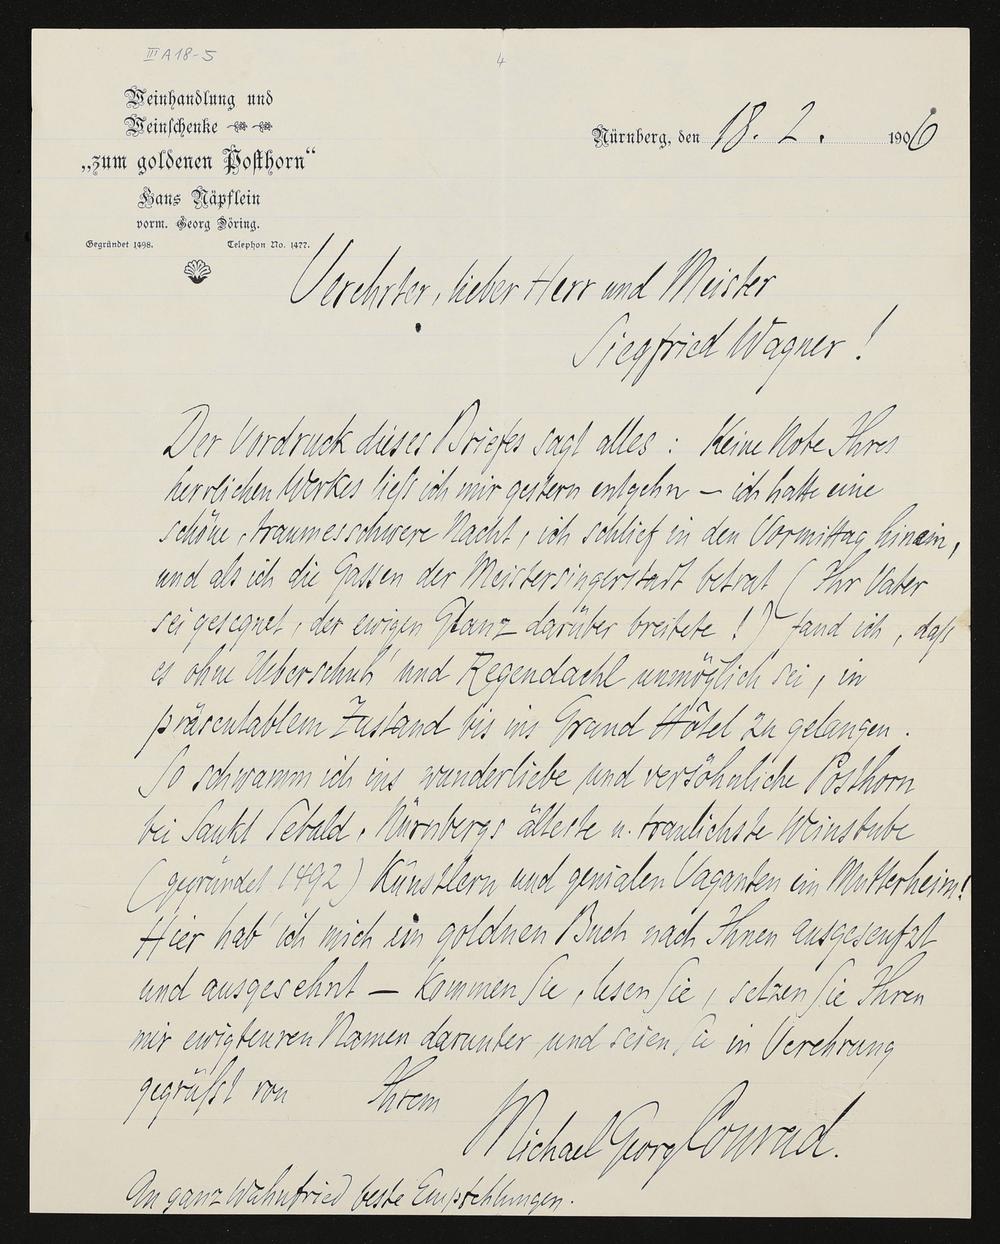 III A 18-5
4
Weinhandlung und
Weinschenke
„zum goldenen Posthorn“
Hans Näpflein
vorm. Georg Döring.
Gegründet 1498. Telephon No. 1477.
Nürnberg, den 18. 2. 1906
Verehrter, lieber Herr und Meister
Siegfried Wagner!
Der Vordruck dieses Briefes sagt alles: Keine Note Ihres
herrlichen Werkes ließ ich mir gestern entgehn – ich hatte eine
schöne, traumesschwere Nacht, ich schlief in den Vormittag hinein,
und als ich die Gassen der Meistersingerstadt betrat (Ihr Vater
sei gesegnet, der ewigen Glanz darüber breitete!) fand ich, daß
es ohne Ueberschuh' und Regendachl unmöglich sei, in
präsentablem Zustand bis ins Grand Hôtel zu gelangen.
So schwamm ich ins wunderliebe und versöhnliche Posthorn
bei Sankt Sebald, Nürnbergs älteste u. traulichste Weinstube
(gegründet 1492) Künstlern und genialen Vaganten ein Mutterheim!
Hier hab' ich mich im goldnen Buch nach Ihnen ausgeseufzt
und ausgesehnt – Kommen Sie, lesen Sie, setzen Sie Ihren
mir ewigteuren Namen darunter und seien Sie in Verehrung
gegrüßt von Ihrem
Michael Georg Conrad.
An ganz Wahnfried beste Empfehlungen.